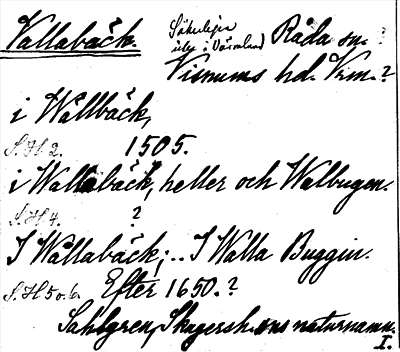 Vallabäck. Sökulejes Råda sn. ?
utg. i Värmland
Visnums hd. Vrm.?
i Wållbäck,
S.H 2. 1505.
i Wallabäck, heller och Walbugen.
S.H 4. ?
I Wåtabäck; .. I Walla Buggin.
S.H 5 o. 6. Efter 1650.?
Sahlgren, Skagersh:ns naturnamn.
I.